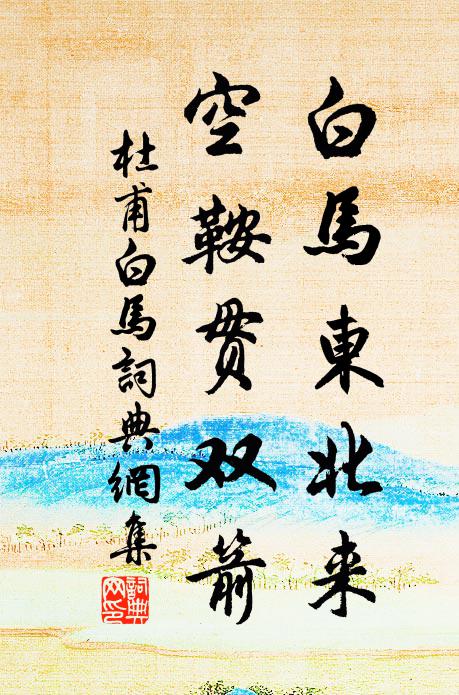 白馬東北来
空鞍貫双箭
杜甫白馬詞典網集